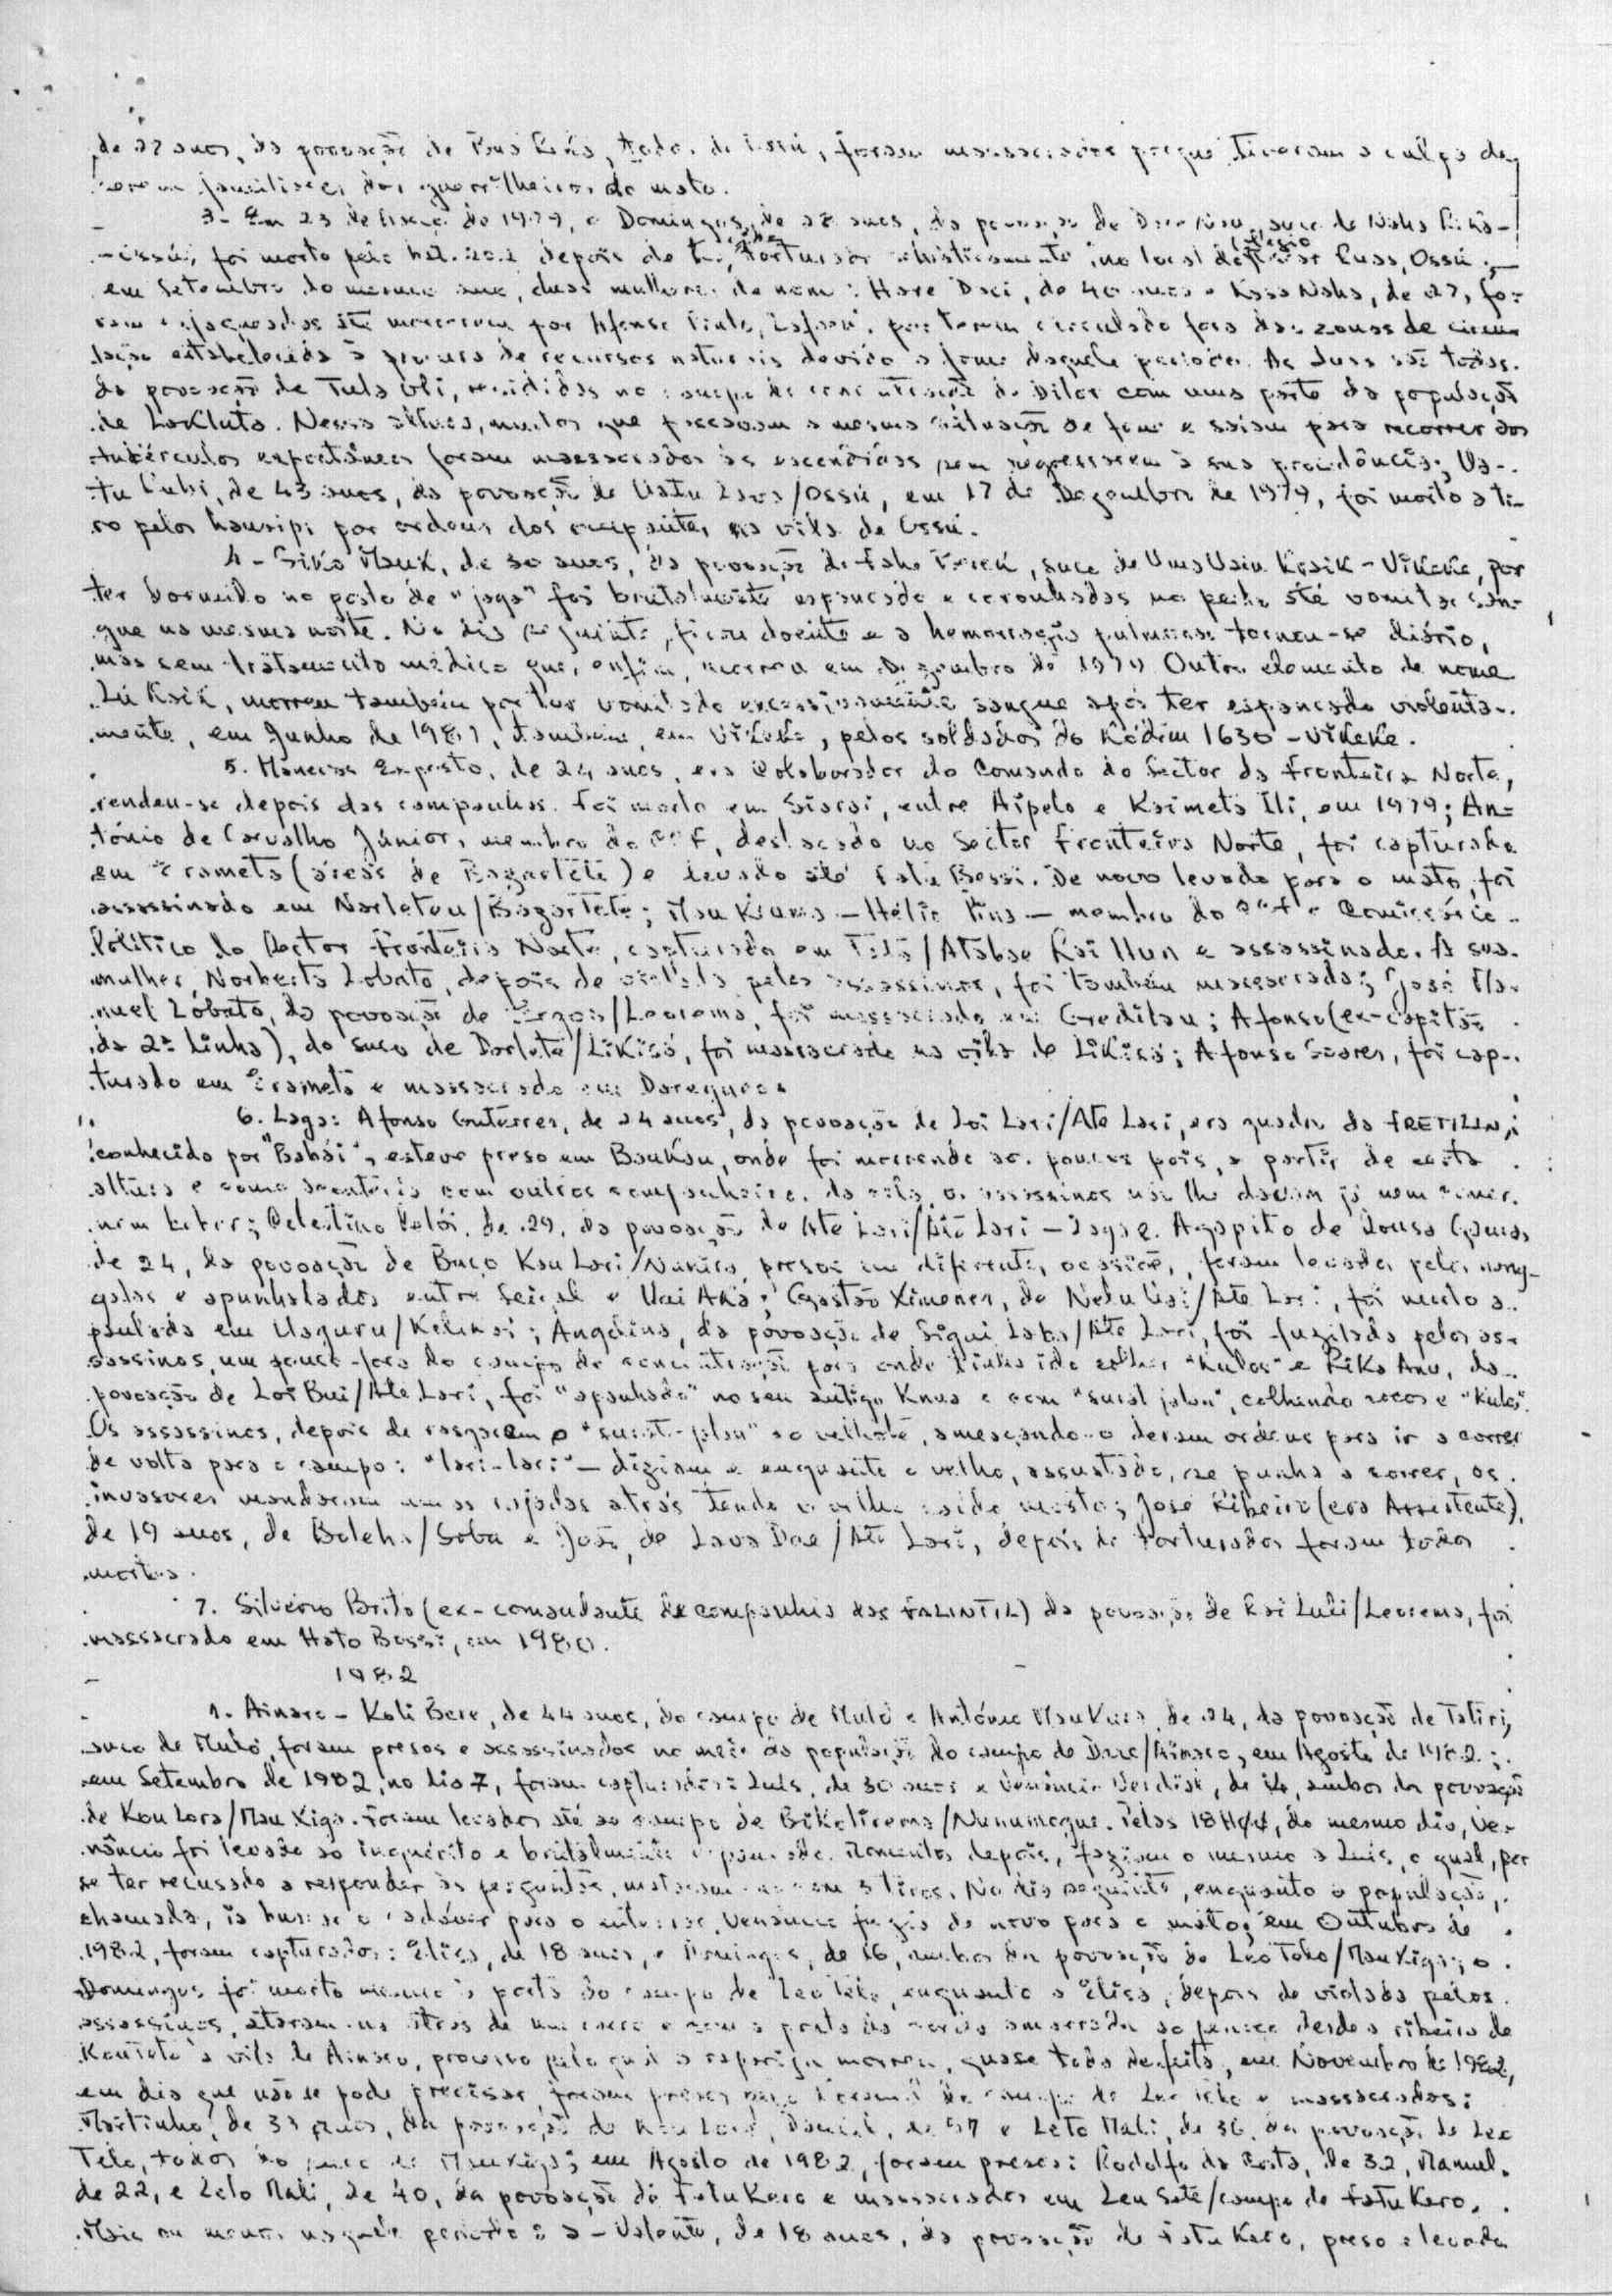 de 27 anos, da povoação de Bua Liha, todos de Ossú, foram massacrados porque tiveram a culpa de
serem familiares dos guerrilheiros do mato.
3- Em 23 de de 1979, o Domingos, de anos, da povoação de suco de Naha
Ossú, foi morto pelo bat. 202 depois de ter sido torturado no local de Ossú;
em Setembro do mesmo ano, duas mulheres de nome: Hare Daci, de 40 anos e Kasa Naha, de 27, fo-
ram esfaqueadas até morrerem por Afonso Pinto, por terem circulado fora das zonas de circu
lação estabelecida à procura de recursos naturais devido a fome daquele período. As duas são todas
da povoação de Tula Uli, residídas no campo de concentração de Dilor com uma parte da população
de Lakluta. Nessa altura, muitos que passavam a mesma situação de fome e saiam para recorrer aos
tubérculos espontâneos foram massacrados às escondidas sem regressarem à sua procedência; Ua-
tu Lubi, de 43 anos, da povoação de Uatu Lava/Ossú, em 17 de Dezembro de 1979, foi morto a ti-
ro pelos hansips por ordens dos ocupantes na vila de Ossú.
4 - Siko Mauk, de 30 anos, da povoação de Faho suco de Uma Uain Kraik - Vikeke, por
ter dormido no posto de "jaga" foi brutalmente espancado e coronhadas no peito até vomitar san-
gue na mesma noite. No dia seguinte, ficou doente e a hemorragia pulmonar tornou-se diário,
mas sem tratamento médico que, enfim, morreu em Dezembro de 1979. Outro elemento de nome
Lu Kaik, morreu também por ter vomitado excessivamente sangue após ter espancado violenta-
mente, em Junho de 1981, também em Vikeke, pelos soldados do Kodim 1630 - Vikeke.
5. Moneves Exposto, de 24 anos, era Colaborador do Comando do Sector da Fronteira Norte,
rendeu-se depois das campanhas. Foi morto em Siarai, entre Aipelo e Kaimeta Ili, em 1979; An-
tónio de Carvalho Júnior, membro do CCF, destacado no Sector Fronteira Norte, foi capturado
em Erameta (áreas de Bazartete) e levado até Fatu Bessi. De novo levado para o mato, foi
assassinado em Narleteu/Bazartete; Mau Kruma - Hélio Pina - membro do CCF e Comissário
Político do Sector Fronteira Norte, capturado em Tata/Atabae Kai Hun e assassinado. A sua
mulher, Norberta Lobato, depois de violada pelos assassinos, foi também massacrada; José Ma-
nuel Lobato, da povoação de /Leorema, foi massacrado em Creditau; Afonso (ex-capitão
da 2ª Linha), do suco de Darlete/Likisá, foi massacrado na vila de Likisá; Afonso Soares, foi cap-
turado em Erameta e massacrado em Daregure.
6. Laga: Afonso Guterres, de 24 anos, da povoação de Loi Lari/Ate Lari, era quadro da FRETILIN,
conhecido por "Bahái", esteve preso em Baukau, onde foi morrendo aos poucos pois, a partir de certa
altura e como acontecia com outros companheiros da cela, os assassinos não lhe davam já nem comer
nem beber; Celestino Kelói, de 29, da povoação de Ate Lari/Ate Lari - Laga e Agapito de Sousa Gama,
de 24, da povoação de Buço Kau Lari/Nunira, presos em diferentes ocasiões, foram levados pelos nang-
galas e apunhalados entre Seiçal e Uai Aka; Gastão Ximenes, de Nehu Uai/Ate Lari, foi morto a
paulada em Uaguru/Kelikai; Angelina, da povoação de Sigui Laba/Ate Lari, foi fuzilada pelos as-
sassinos, um pouco fora do campo de concentração para onde tinha ido colher "kulos" e Riko Anu, da
povoação de Loi Bui/Ate Lari, foi "apanhado" no seu antigo knua e com "surat jalan", colhendo cocos e "kulos".
Os assassinos, depois de rasgarem o "surat-jalan" ao velhote, ameaçando-o deram ordens para ir a correr
de volta para o campo: "lari-lari" - diziam e enquanto o velho, assustado, se punha a correr, os
invasores mandaram umas rajadas atrás tendo o velho caído morto; José Ribeiro (era Assistente),
de 19 anos, de Boleha/Soba e João, de Lava Dae/Ate Lari, depois de torturados foram todos
mortos.
7. Silvério Brito (ex-comandante de companhia das FALINTIL) da povoação de Kai Luli/Leorema, foi
massacrado em Hato Bessi, em 1980.
1982
1. Ainaro - Koli Bere, de 44 anos, do campo de Mulo e António Mau Kura, de 24, da povoação de Tatiri,
suco de Mulo, foram presos e assassinados no meio da população do campo de Dare/Ainaro, em Agosto de 1982;
em Setembro de 1982, no dia 7, foram capturados: Luis, de 30 anos e Venâncio Verdial, de 14, ambos da povoação
de Kou Lora/Mau Xiga. Foram levados até ao campo de Bikalirema/Nunumogue. Pelas 18H00, do mesmo dia, Ve-
nâncio foi levado ao inquérito e brutalmente espancado. Momentos depois, faziam o mesmo a Luis, o qual, por
se ter recusado a responder às perguntas, mataram-no com 3 tiros. No dia seguinte, enquanto a população,
chamada, ia buscar o cadáver para o enterrar, Venâncio fugia de novo para o mato; em Outubro de
1982, foram capturados: Elisa, de 18 anos, e Domingos, de 16, ambos da povoação de Leo Telo/Mau Xiga; o
Domingos foi morto mesmo à porta do campo de Leo telo, enquanto a Elisa, depois de violada pelos
assassinos, ataram-na atrás de um carro e com a ponta da corda amarrada ao pescoço desde a ribeira de
à vila de Ainaro, processo pelo qual a rapariga morreu, quase toda desfeita, em Novembro de 1982,
em dia que não se pode precisar, foram presos do campo de Leo telo e massacrados:
Martinho, de 33 anos, da povoação de Kou Lora, Daniel, de 57 e Leto Mali, de 36, da povoação de Leo
Telo, todos do suco de Mau Xiga; em Agosto de 1982, foram presos: Rodolfo da Costa, de 32, Manuel,
de 22, e Lelo Mali, de 40, da povoação de Fatu Karo e massacrados em Leu Sate/campo de Fatu Karo.
Mais ou menos naquele período: a - Valente, de 18 anos, da povoação de Fatu Karo, preso e levado